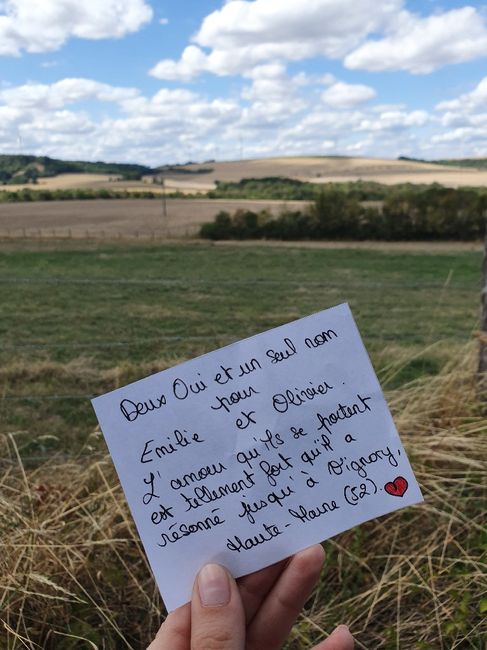 Deux Oui et un seul nom
pour
Emilie et Olivier.
L'amour qu'ils se portent
est tellement fort qu'il a
résonné jusqu'à Vignory,
Haute-Marne (52).